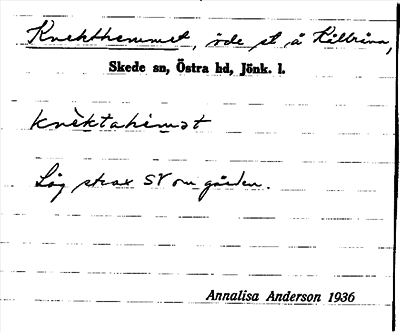 Knekthemmet, öde st å Källeränn,
Skede sn, Östra hd, Jönk. l.
knèktahem̀ət
Låg strax SV om gården.
Annalisa Anderson 1936